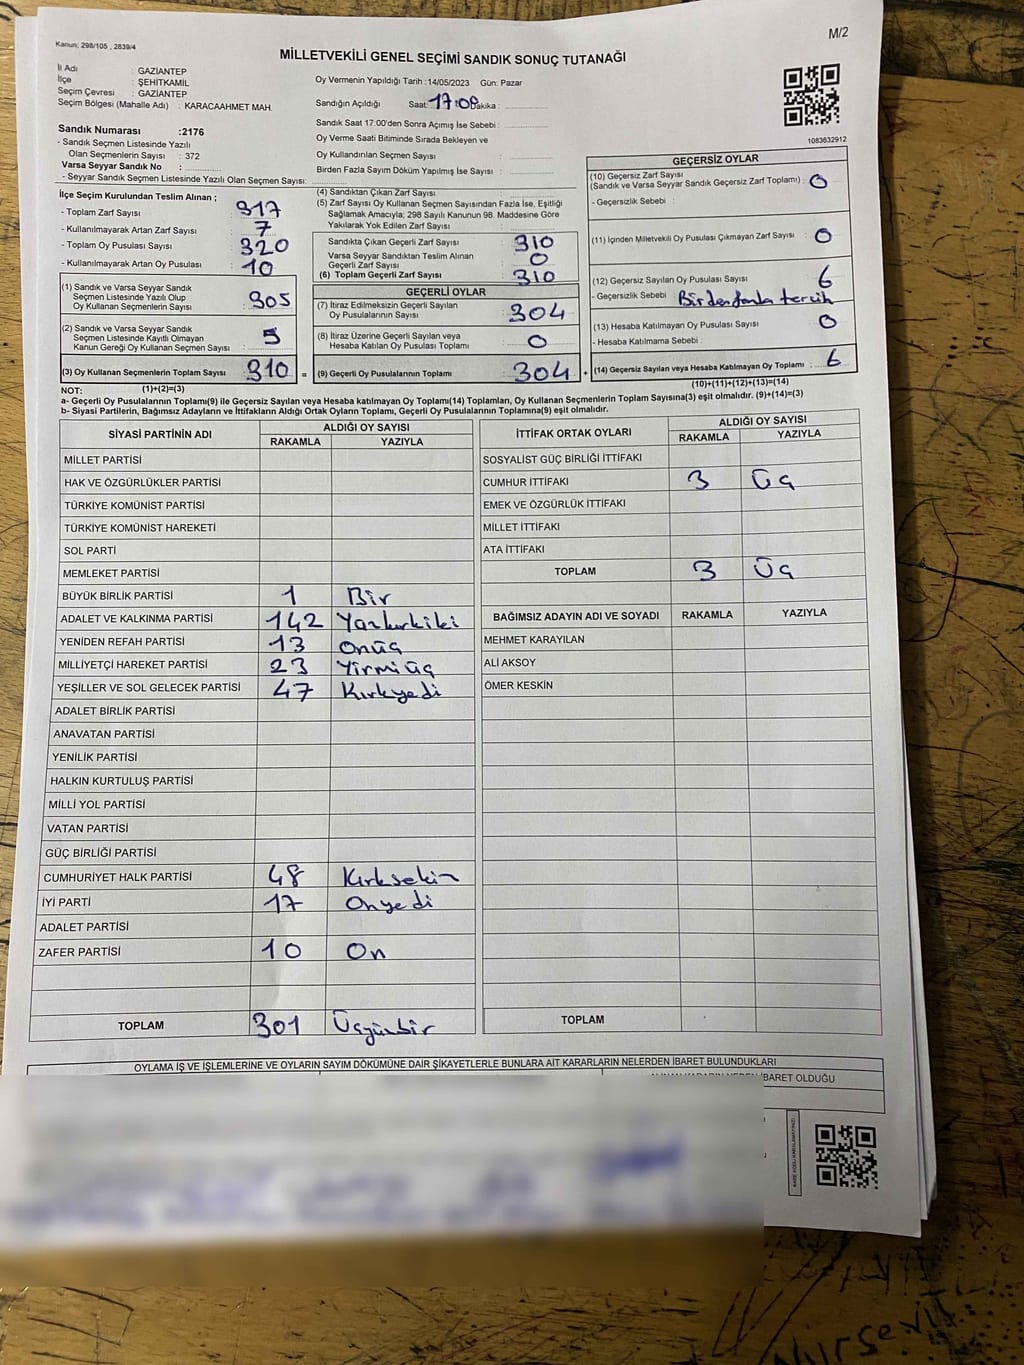 M/2
Kanun; 298/105 , 2839/4
MİLLETVEKİLİ GENEL SEÇİMİ SANDIK SONUÇ TUTANAĞI
İl Adı : GAZİANTEP
İlçe : ŞEHİTKAMİL
Seçim Çevresi : GAZİANTEP
Seçim Bölgesi (Mahalle Adı) : KARACAAHMET MAH.
Sandık Numarası :2176
- Sandık Seçmen Listesinde Yazılı
Olan Seçmenlerin Sayısı : 372
Varsa Seyyar Sandık No :
- Seyyar Sandık Seçmen Listesinde Yazılı Olan Seçmen Sayısı:
Oy Vermenin Yapıldığı Tarih :14/05/2023 Gün: Pazar
Sandığın Açıldığı Saat: 17:08 Dakika :
Sandık Saat 17:00'den Sonra Açımış İse Sebebi :
Oy Verme Saati Bitiminde Sırada Bekleyen ve
Oy Kullandırılan Seçmen Sayısı :
Birden Fazla Sayım Döküm Yapılmış İse Sayısı :
1083632912
İlçe Seçim Kurulundan Teslim Alınan ;
- Toplam Zarf Sayısı : 317
- Kullanılmayarak Artan Zarf Sayısı : 7
- Toplam Oy Pusulası Sayısı : 320
- Kullanılmayarak Artan Oy Pusulası : 10
(1) Sandık ve Varsa Seyyar Sandık
Seçmen Listesinde Yazılı Olup
Oy Kullanan Seçmenlerin Sayısı : 305
(2) Sandık ve Varsa Seyyar Sandık
Seçmen Listesinde Kayıtlı Olmayan
Kanun Gereği Oy Kullanan Seçmen Sayısı : 5
(3) Oy Kullanan Seçmenlerin Toplam Sayısı : 310 =
(4) Sandıktan Çıkan Zarf Sayısı :
(5) Zarf Sayısı Oy Kullanan Seçmen Sayısından Fazla İse, Eşitliği
Sağlamak Amacıyla; 298 Sayılı Kanunun 98. Maddesine Göre
Yakılarak Yok Edilen Zarf Sayısı :
Sandıkta Çıkan Geçerli Zarf Sayısı : 310
Varsa Seyyar Sandıktan Teslim Alınan
Geçerli Zarf Sayısı : 0
(6) Toplam Geçerli Zarf Sayısı : 310
GEÇERLİ OYLAR
(7) İtiraz Edilmeksizin Geçerli Sayılan
Oy Pusulalarının Sayısı : 304
(8) İtiraz Üzerine Geçerli Sayılan veya
Hesaba Katılan Oy Pusulası Toplamı : 0
(9) Geçerli Oy Pusulalarının Toplamı : 304
GEÇERSİZ OYLAR
(10) Geçersiz Zarf Sayısı
(Sandık ve Varsa Seyyar Sandık Geçersiz Zarf Toplamı) : 0
- Geçersizlik Sebebi :
(11) İçinden Milletvekili Oy Pusulası Çıkmayan Zarf Sayısı : 0
(12) Geçersiz Sayılan Oy Pusulası Sayısı : 6
- Geçersizlik Sebebi Birden fazla tercih
(13) Hesaba Katılmayan Oy Pusulası Sayısı : 0
- Hesaba Katılmama Sebebi :
(14) Geçersiz Sayılan veya Hesaba Katılmayan Oy Toplamı : 6
NOT: (1)+(2)=(3) (10)+(11)+(12)+(13)=(14)
a- Geçerli Oy Pusulalarının Toplamı(9) ile Geçersiz Sayılan veya Hesaba katılmayan Oy Toplamı(14) Toplamları, Oy Kullanan Seçmenlerin Toplam Sayısına(3) eşit olmalıdır. (9)+(14)=(3)
b- Siyasi Partilerin, Bağımsız Adayların ve İttifakların Aldığı Ortak Oyların Toplamı, Geçerli Oy Pusulalarının Toplamına(9) eşit olmalıdır.
SİYASİ PARTİNİN ADI ALDIĞI OY SAYISI
RAKAMLA YAZIYLA
MİLLET PARTİSİ
HAK VE ÖZGÜRLÜKLER PARTİSİ
TÜRKİYE KOMÜNİST PARTİSİ
TÜRKİYE KOMÜNİST HAREKETİ
SOL PARTİ
MEMLEKET PARTİSİ
BÜYÜK BİRLİK PARTİSİ 1 Bir
ADALET VE KALKINMA PARTİSİ 142 Yüzkırkiki
YENİDEN REFAH PARTİSİ 13 Onüç
MİLLİYETÇİ HAREKET PARTİSİ 23 Yirmiüç
YEŞİLLER VE SOL GELECEK PARTİSİ 47 Kırkyedi
ADALET BİRLİK PARTİSİ
ANAVATAN PARTİSİ
YENİLİK PARTİSİ
HALKIN KURTULUŞ PARTİSİ
MİLLİ YOL PARTİSİ
VATAN PARTİSİ
GÜÇ BİRLİĞİ PARTİSİ
CUMHURİYET HALK PARTİSİ 48 Kırksekiz
İYİ PARTİ 17 Onyedi
ADALET PARTİSİ
ZAFER PARTİSİ 10 On
TOPLAM 301 Üçyüzbir
İTTİFAK ORTAK OYLARI ALDIĞI OY SAYISI
RAKAMLA YAZIYLA
SOSYALİST GÜÇ BİRLİĞİ İTTİFAKI
CUMHUR İTTİFAKI 3 Üç
EMEK VE ÖZGÜRLÜK İTTİFAKI
MİLLET İTTİFAKI
ATA İTTİFAKI
TOPLAM 3 Üç
BAĞIMSIZ ADAYIN ADI VE SOYADI RAKAMLA YAZIYLA
MEHMET KARAYILAN
ALİ AKSOY
ÖMER KESKİN
TOPLAM
OYLAMA İŞ VE İŞLEMLERİNE VE OYLARIN SAYIM DÖKÜMÜNE DAİR ŞİKAYETLERLE BUNLARA AİT KARARLARIN NELERDEN İBARET BULUNDUKLARI
İBARET OLDUĞU